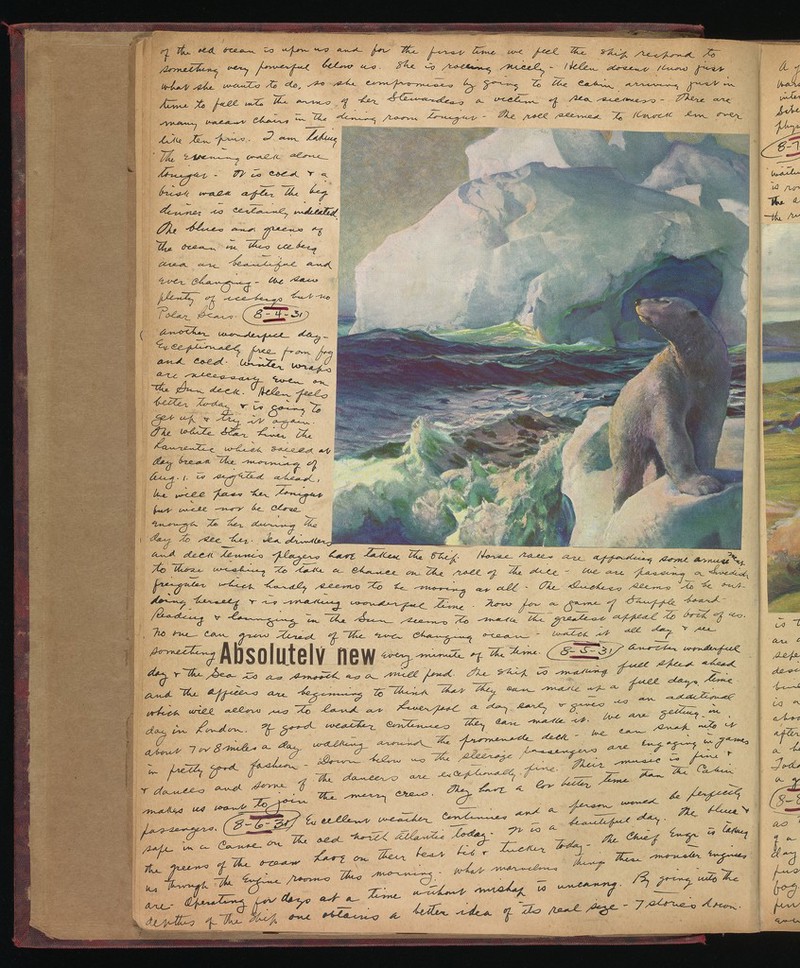 of the old ocean is upon us and for the first time we feel the ship respond to
something very powerful below us. She is rolling nicely - Helen dosent know just
what she wants to do, so she compromises by going to the cabin arriving just in
time to fall into the arms of her Stewardess a victim of sea sickness - There are
many vacant chairs in the dining room tonight - The roll seemed to knock em over
like ten pins. I am taking
the evening walk alone
tonight - It is cold & a
brisk walk after the big
dinner is certainly indicated.
The blues and greens of
the ocean in this iceberg
area are beautiful and
ever changing - We saw
plenty of icebergs but no
Polar bears. 8-4-31
another wonderful day -
Exceptionally free from fog
and cold. Winter wraps
are necessary even on
the Sun deck. Helen feels
better today & is going to
get up & try it again.
The White Star Liner the
Laurentic which sailed at
day break the morning of
Aug. 1. is sighted ahead.
We will pass her tonight
but will not be close
enough to her during the
day to see her. Tea drinkers
and deck tennis players have taken the ship. Horse races are affording some amusement
to those wishing to take a chance on the roll of the dice - We are passing a Swedish
freighter which hardly seems to be moving at all - The Duchess seems to be out-
doing herself & is making wonderful time. Now for a game of Shuffle board -
Reading & lounging in the Sun seems to make the greatest appeal to both of us.
No one can grow tired of the ever changing ocean - watch it all day & see
something Absolutely new every minute of the time. 8-5-31 another wonderful
day & the Sea is as smooth as a mill pond. The ship is making full speed ahead
and the officers are beginning to think that they can make up a full days time
which will allow us to land at Liverpool a day early & gives us an additional
day in London. If good weather continues they can make it. We are getting in
about 7 or 8 miles a day walking around the promenade deck - we can snap into it
in pretty good fashion - Down below us the steerage passengers are engaging in games
& dances and some of the dancers are exceptionally fine. Their music is fine &
makes us want to join the merry crew. They have a lot better time than the Cabin
passengers. 8-6-31 Excellent weather continues and a person would be perfectly
safe in a Canoe on the old north Atlantic today. It is a beautiful day. The blues &
the greens of the ocean have on their best bib & tucker today - The Chief Engr is taking
us through the Engine rooms this morning. What marvelous things these monster engines
are. Operating for days at a time without mishap is uncanny. By going into the
depths of the ship one obtains a better idea of its real size - 7 stories down.